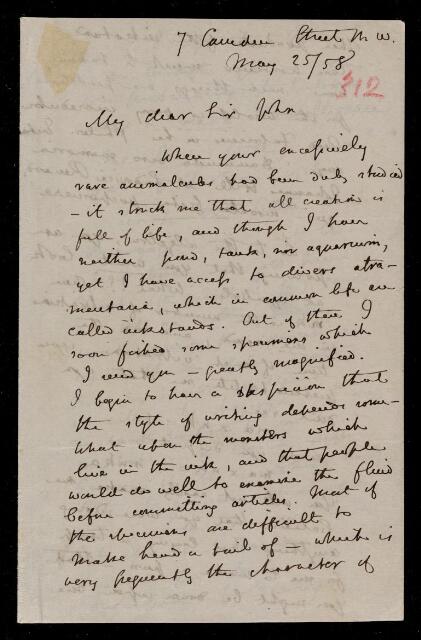 7 Camden Street N.W.
May 25/58
312
My dear Sir John
When your excessively
rare animalcules had been duly studied
- it struck me that all creation is
full of life, and though I have
neither pond, tank, nor aquarium,
yet I have access to divers atra-
mentaria, which in common life are
called inkstands. Out of these I
soon fished some specimens which
I send you - greatly magnified.
I begin to have a suspicion that
the style of writing depends some-
what upon the monsters which
live in the ink, and that people
would do well to examine the fluid
before committing articles. Most of
the specimens are difficult to
make head or tail of - which is
very frequently the character of